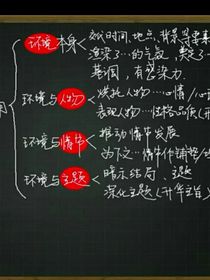 环境本身 交代时间、地点、背景
渲染了…的气氛,奠定了…
基调,有感染力.
用
环境与人物 烘托人物…心情/心
表现人物…性格品质(
环境与情节 推动情节发展
为下文…情节作铺垫/
环境与主题 暗示结局、主题
深化主题(升华主旨)